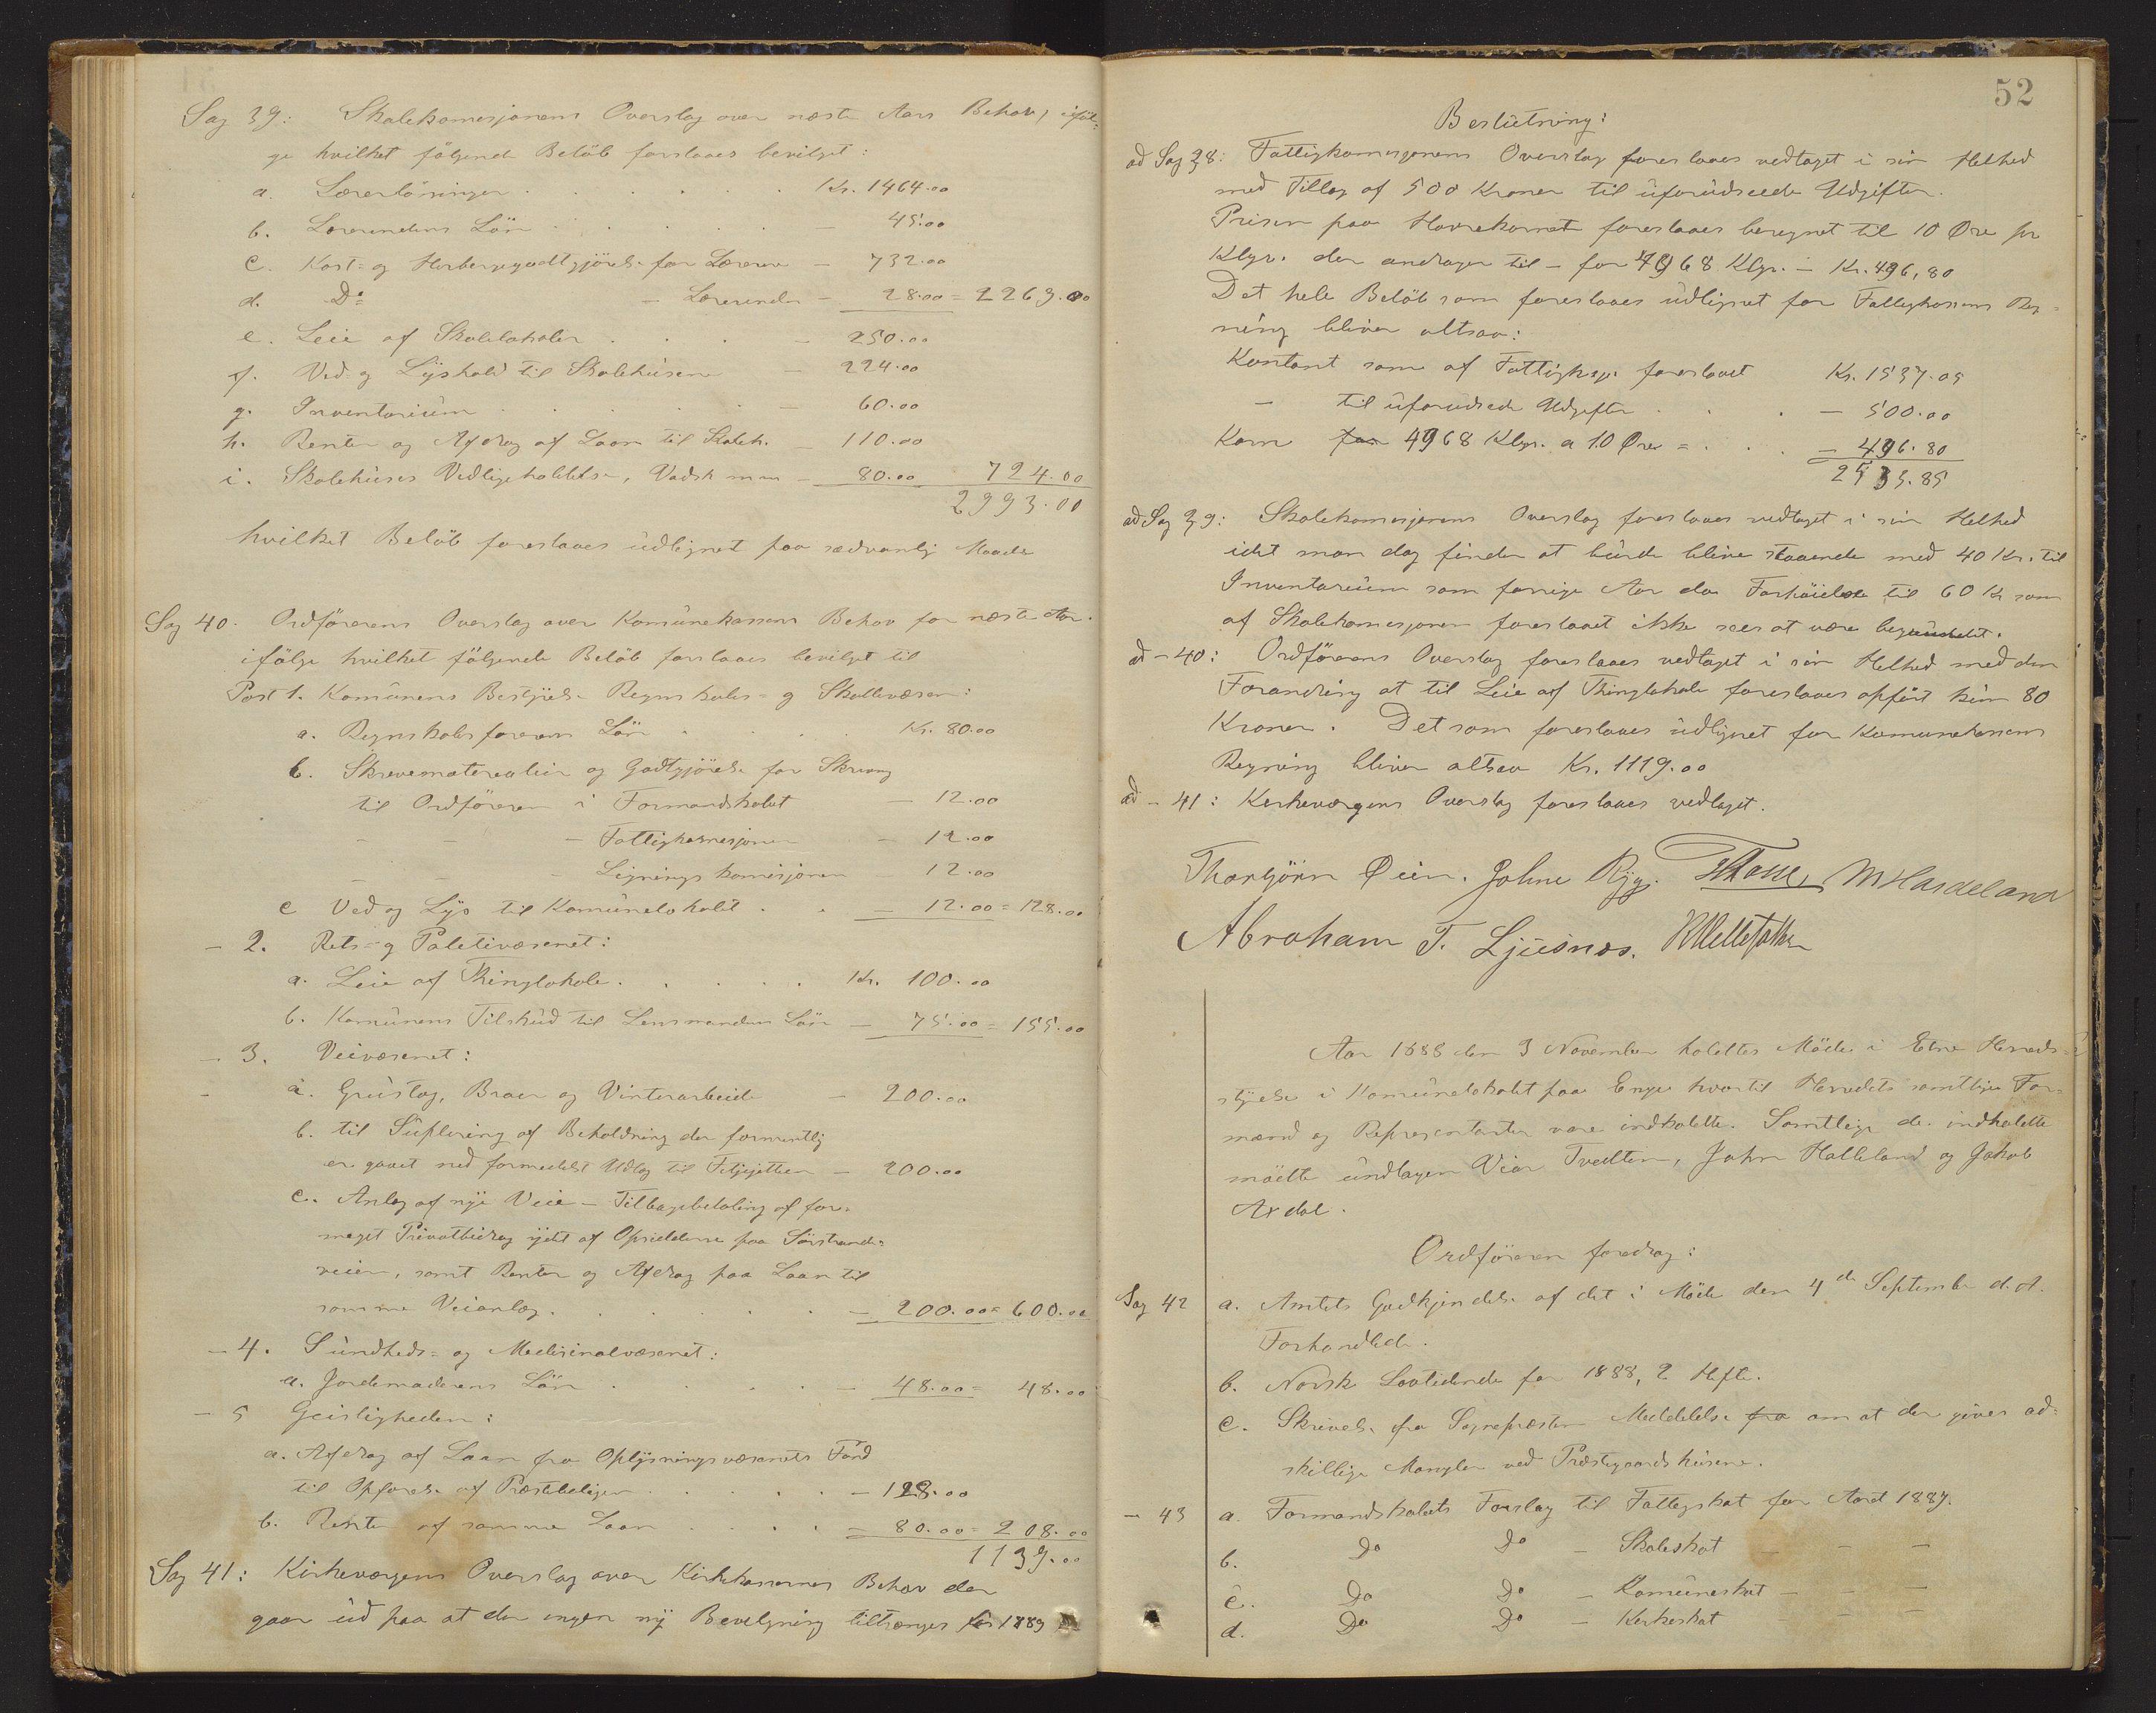 Sag 39: Skolekomisjonens Overslag over næste Aars Behov, iföl-
ge hvilket fölgende Belöb forslaaes bevilget:
a. Lærerlöninger . . . . . . Kr. 1464.00
b. Lærerindens Lön . . . . . — 45.00
c. Kost- og Herbergegodtgjörelse for Lærerne — 732.00
d. Do — Lærerinden — 28.00 = 2269.00
e. Leie af Skolelokaler . . . — 250.00
f. Ved og Lyshold til Skolehusene — 224.00
g. Inventarium . . . . . — 60.00
h. Renter og Afdrag af Laan til Skoleh. — 110.00
i. Skolehuses Vedligeholdelse, Vadsk m m — 80.00 724.00
2993.00
hvilket Belöb foreslaaes udlignet paa sædvanlig Maade
Sag 40. Ordförerens Overslag over Komunekassens Behov for næste Aar.
ifölge hvilket fölgende Belöb forslaaes bevilget til
Post 1. Komunens Bestyrelse Regnskabs- og Skattevæsen:
a. Regnskabsförerens Lön . . . . Kr. 80.00
b. Skrivematerealier og Godtgjörelse for Skrivning
til Ordföreren i Formandskabet — 12.00
— — — Fattigkomisjonen — 12.00
— — — Ligningskomisjonen — 12.00
c Ved og Lys til Komunelokalet . . — 12.00 = 128.00
— 2. Rets- og Politivæsenet:
a. Leie af Thinglokale . . . . . Kr. 100.00
b. Komunens Tilskud til Lensmandens Lön — 75.00 = 155.00
— 3. Veivæsenet:
a. Grustag, Broer og Vinterarbeide — 200.00
b. til Suplering af Beholdning der formentlig
er gaaet ned formedelst Udlæg til — 200.00
c. Anlæg af nye Veie — Tilbagebetaling af for-
meget Privatbidrag ydet af Opsidderne paa Sörstrands-
veien, samt Renter og Afdrag paa Laan til
samme Veianlæg . . . . . . — 200.00 = 600.00
— 4. Sundheds- og Medisinalvæsenet:
a. Jordemoderens Lön . . . . — 48.00 = 48.00
— 5 Geistligheden:
a. Afdrag af Laan fra Oplysningsvæsenets Fond
til Opförelse af Præsteboligen . . . . . — 128.00
b. Renter af samme Laan . . . . — 80.00 = 208.00
1139.00
Sag 41: Kirkeværgens Overslag over Kirkekassernes Behov der
gaar ud paa at der ingen ny Bevilgning tiltrænges for 1889
52
Beslutning:
ad Sag 38: Fattigkomisjonens Overslag foreslaaes vedtaget i sin Helhed
med Tillæg af 500 Kroner til uforudseede Udgifter.
Prisen paa Havrekornet foreslaaes beregnet til 10 Øre pr
Klgr. der andrager til — for 4968 Klgr. — Kr. 496,80
Det hele Belöb som foreslaaes udlignet for Fattigkassens Reg-
ning bliver altsaa:
Kontant som af Fattigkoms. foreslaaet Kr. 1537.05
— til uforudsede Udgifter . . . — 500.00
Korn for 4968 Klgr. a 10 Øre = . . . — 496.80
2535.85
ad Sag 39: Skolekomisjonens Overslag foreslaaes vedtaget i sin Helhed
idet man dog finder at burde blive staaende med 40 Kr. til
Inventarium som forrige Aar da Forhöielse til 60 Kr som
af Skolekomisjonen foreslaaet ikke sees at være begrundet.
ad — 40: Ordförerens Overslag foreslaaes vedtaget i sin Helhed med den
Forandring at til Leie af Thinglokale foreslaaes opfört kun 80
Kroner. Det som foreslaaes udlignet for Komunekassens
Regning bliver altsaa Kr. 1119.00
ad — 41: Kerkeværgens Overslag foreslaaes vedtaget.
Thorbjörn Øien. Johne Ryg. M Hardeland
Abraham T. Ljusnes.
Aar 1888 den 3 November holdtes Möde i Etne Herreds-
styrelse i Komunelokalet paa Enge hvortil Herredets samtlige For-
mænd og Representanter vare indkaldte. Samtlige de indkaldte
mödte undtagen Vier Tvedten, John Halleland og Jakob
Axdal.
Ordföreren foredrog:
Sag 42 a. Amtets Godkjendelse af det i Möde den 4de September d.A.
Forhandlede.
b. Norsk Lovtidende for 1888, 2 Hefte.
c. Skrivelse fra Sognepræsten Meddelelse fra om at der gives ad-
skillige Mangler ved Præstegaardshusene.
— 43 a. Formandskabets Forslag til Fattigskat for Aaret 1889.
b. Do Do — Skoleskat — — —
c. Do Do — Komuneskat — — —
d. Do Do — Kerkeskat — —